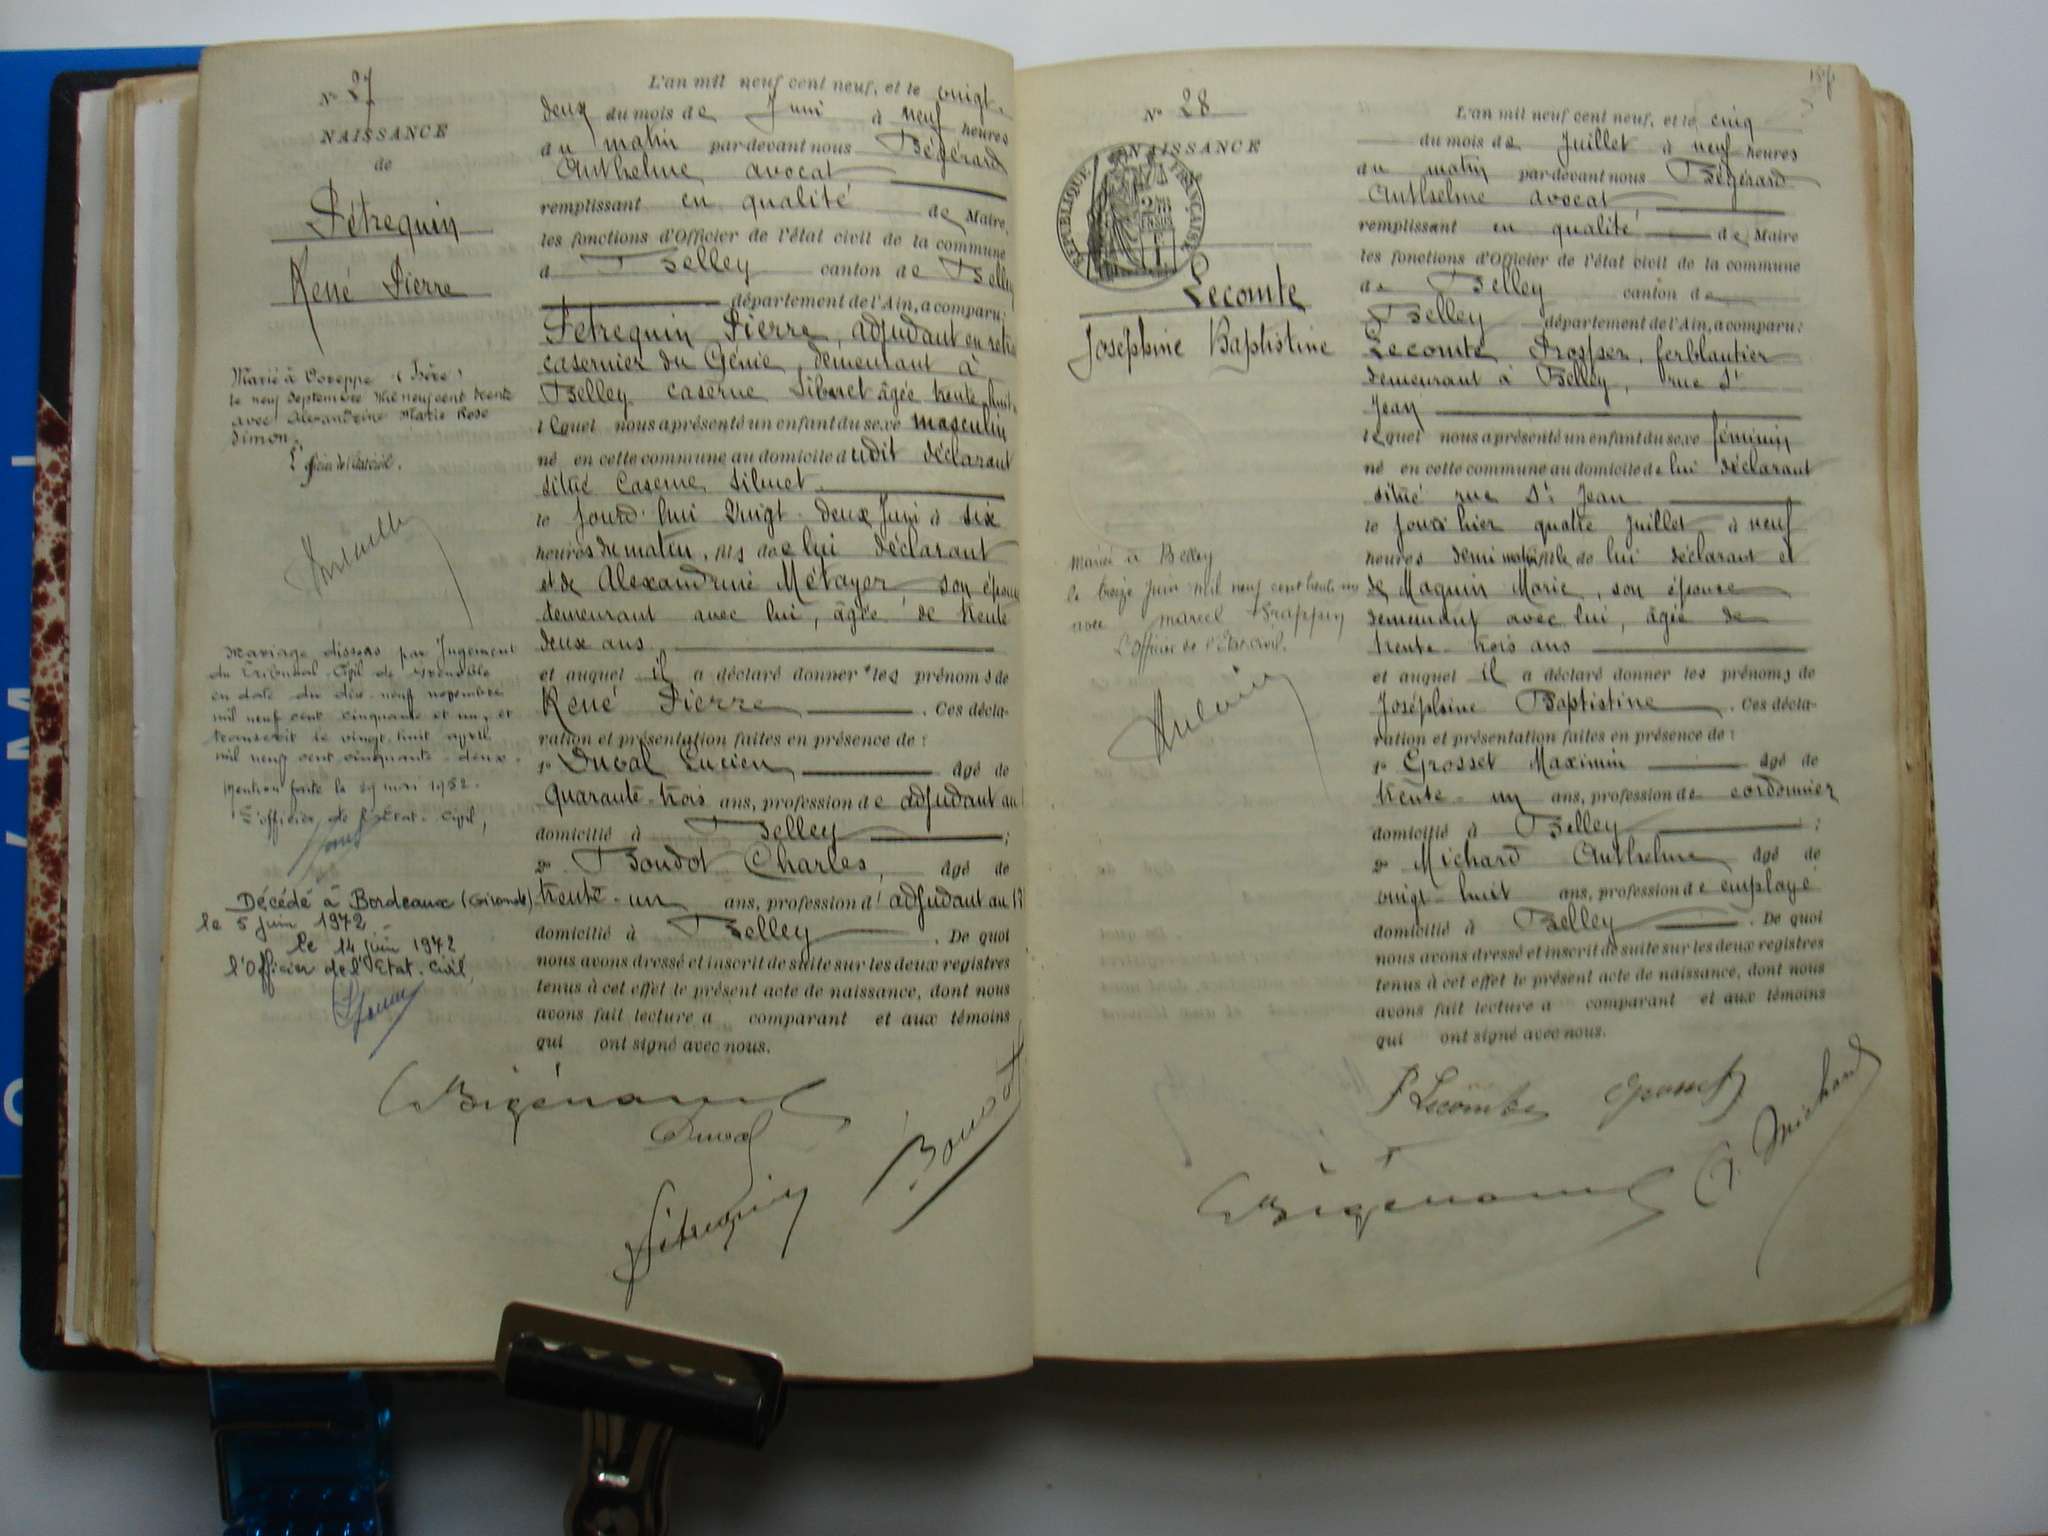 N° 27
NAISSANCE
de
Pétrequin
René Pierre
Marié à Voreppe (Isère)
le neuf Septembre Mil neuf cent trente
avec Alexandrine Marie Rose
Simon.
L'officier de l'état civil.
Mariage dissous par Jugement
du Tribunal Civil de Grenoble
en date du dix-neuf novembre
mil neuf cent cinquante et un, et
transcrit le vingt-huit avril
mil neuf cent cinquante-deux.
Mention faite le 29 mai 1952.
L'officier de l'État-Civil,
Décédé à Bordeaux (Gironde)
le 5 juin 1972
le 14 juin 1972
l'Officier de l'Etat-Civil,
L'an mil neuf cent neuf, et le vingt-
deux du mois de Juin à neuf heures
du matin par-devant nous Bégérard
Anthelme avocat
remplissant en qualité de Maire,
les fonctions d'Officier de l'état civil de la commune
d Belley canton de Belley
département de l'Ain, a comparu:
Pétrequin Pierre, adjudant en retr
casernier du Génie, demeurant à
Belley caserne Sibuet âgée trente-huit
lequel nous a présenté un enfant du sexe masculin
né en cette commune au domicile dudit déclarant
situé Caserne Sibuet
le jourd'hui vingt-deux Juin à six
heures du matin, fils de lui déclarant
et de Alexandrine Métayer son épouse
demeurant avec lui, âgée de trente
deux ans
et auquel il a déclaré donner les prénoms de
René Pierre . Ces décla-
ration et présentation faites en présence de :
1° Duval Lucien âgé de
quarante-trois ans, profession de adjudant au
domicilié à Belley ;
2° Boudot Charles, âgé de
trente-un ans, profession d'adjudant au 13
domicilié à Belley . De quoi
nous avons dressé et inscrit de suite sur les deux registres
tenus à cet effet le présent acte de naissance, dont nous
avons fait lecture a comparant et aux témoins
qui ont signé avec nous.
Bégérard
Duval
Boudot
Pétrequin
N° 28
NAISSANCE
RÉPUBLIQUE FRANÇAISE
Lecomte
Joséphine Baptistine
Mariée à Belley
le treize juin mil neuf cent trente un
avec Marcel Grappin
L'Officier de l'État civil.
L'an mil neuf cent neuf, et le cinq
du mois de Juillet à neuf heures
du matin par-devant nous Bégérard
Anthelme avocat
remplissant en qualité de Maire
les fonctions d'Officier de l'état civil de la commune
de Belley canton de
Belley département de l'Ain, a comparu:
Lecomte Prosper, ferblantier
demeurant à Belley, rue St
Jean
lequel nous a présenté un enfant du sexe féminin
né en cette commune au domicile de lui déclarant
situé rue St Jean
le jour d'hier quatre juillet à neuf
heures demi matin, fille de lui déclarant et
de Maquin Marie, son épouse
demeurant avec lui, âgée de
trente-trois ans
et auquel il a déclaré donner les prénoms de
Joséphine Baptistine . Ces décla-
ration et présentation faites en présence de :
1° Grosset Maximin âgé de
trente-un ans, profession de cordonnier
domicilié à Belley ;
2° Michard Anthelme âgé de
vingt-huit ans, profession d'employé
domicilié à Belley . De quoi
nous avons dressé et inscrit de suite sur les deux registres
tenus à cet effet le présent acte de naissance, dont nous
avons fait lecture a comparant et aux témoins
qui ont signé avec nous.
P Lecomte Grosset
A. Michard
Bégérard